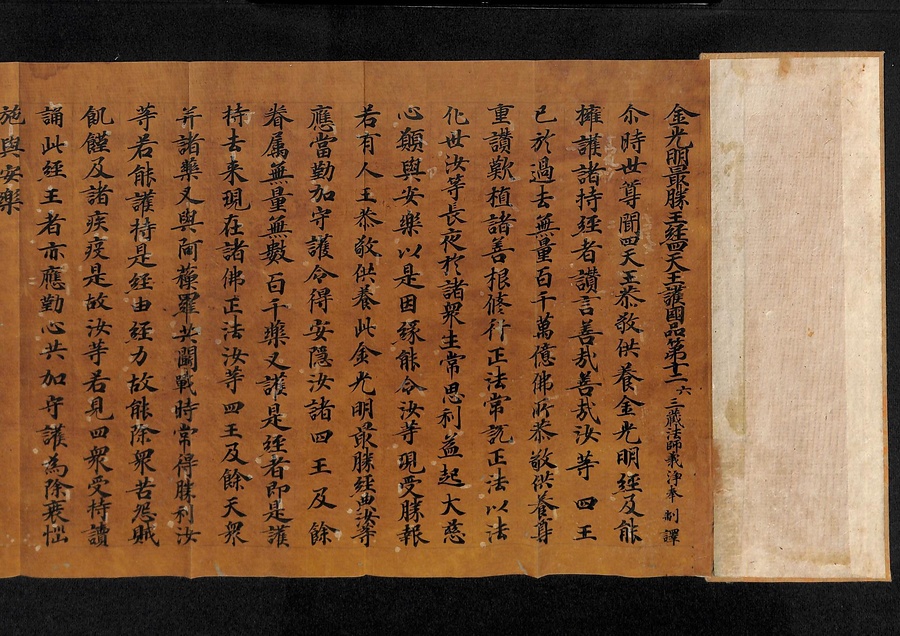 金光明最勝王經四天王護國品第十二 六 三藏法師義淨奉 制譯
尒時世尊聞四天王恭敬供養金光明經及能
擁護諸持經者讚言善㢤善㢤汝等四王
已於過去無量百千萬億佛所恭敬供養
重讚歎植諸善根修行正法常説正法以法
化世汝等長夜於諸衆生常思利益起大慈
心願與安樂以是因緣能令汝等現受勝報
若有人王恭敬供養此金光明最勝經典汝等
應當勤加守護令得安隱汝諸四王及餘
眷属無量無數百千藥叉護是經者即是護
持去来現在諸佛正法汝等四王及餘天衆
并諸藥叉與阿蘓羅共鬪戰時常得勝利汝
等若能護持是經由經力故能除衆苦怨賊
飢饉及諸疾疫是故汝等若見四衆受持讀
誦此經王者亦應勤心共加守護為除衰惱
施與安樂